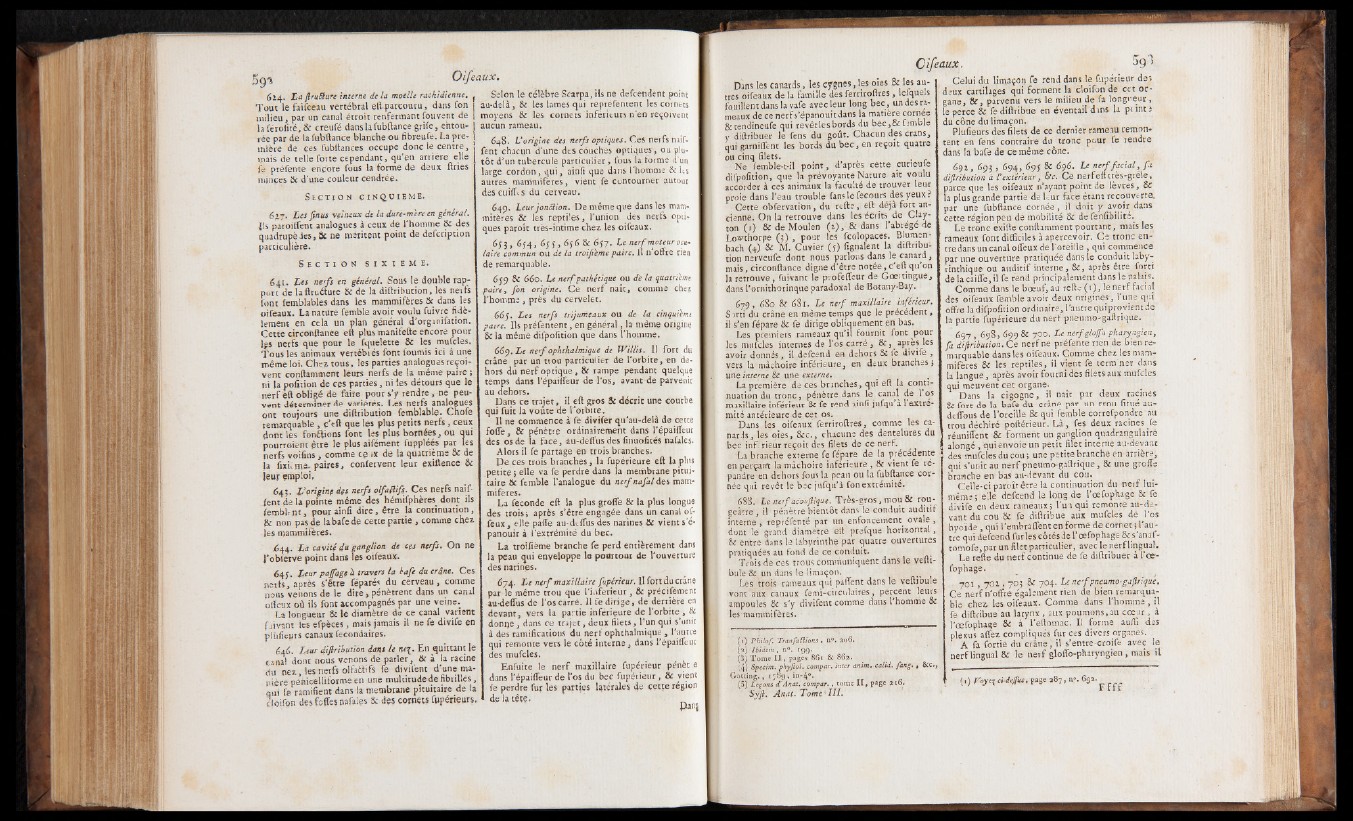 592
Oiseaux.
624. La structure interne de la moelle rachidienne.
Tout le faisceau vertébral est parcouru, dans son
milieu, par un canal étroit renfermant souvent de
la sérosité, & creusé dans la substance grise, entou-
rée par de la substance blanche ou fibreuse. La pre-
mière de ces substances occupe donc le centre,
mais de telle sorte cependant, qu'en arrière elle
se présente encore sous la forme de deux stries
minces & d'une couleur cendrée.
SECTION CINQUIEME.
627. Les sinus veineux de la dure-mère en général.
Ils paroissent analogues à ceux de l'homme & des
quadrupèdes, & ne méritent point de description
particulière.
SECTION SIXIEME.
641. Les nerfs en général. Sous le double rap-
port de la structure & de la distribution, les nerfs
sont semblables dans les mammifères & dans les
oiseaux. La nature semble avoir voulu suivre fidè-
lement en cela un plan général d'organisation.
Cette circonstance est plus manifeste encore pour
les nerfs que pour le squelette & les muscles.
Tous les animaux vertébrés sont soumis ici à une
même loi. Chez tous, les parties analogues reçoi-
vent constamment leurs nerfs de la même paire;
ni la position de ces parties, ni les détours que le
nerf est obligé de faire pour s'y rendre, ne peu-
vent déterminer de variétés. Les nerfs analogues
ont toujours une distribution semblable. Chose
remarquable, c'est que les plus petits nerfs, ceux
dont les fonctions sont les plus bornées, ou qui
pourroient être le plus aisément suppléés par les
nerfs voisins, comme ceux de la quatrième & de
la sixième paires, conservent leur existence &
leur emploi.
642. L'origine des nerfs olfactifs. Ces nerfs nais-
sent de la pointe même des hémisphères dont ils
semblent, pour ainsi dire, être la continuation,
& non pas de la base de cette partie, comme chez
les mammifères.
644. La cavité du ganglion de ces nerfs. On ne
l'observe point dans les oiseaux.
645. Leur passage à travers la base du crâne. Ces
nerfs, après s'être séparés du cerveau, comme
nous venons de le dire, pénètrent dans un canal
osseux où ils sont accompagnés par une veine.
La longueur & le diamètre de ce canal varient
suivant les espèces, mais jamais il ne se divise en
plusieurs canaux secondaires.
646. Leur distribution dans le nez. En quittant le
canal dont nous venons de parler, & à la racine
du nez, les nerfs olfactifs se divisent d'une ma-
nière pénicelliforme en une multitude de fibrilles,
qui se ramifient dans la membrane pituitaire de la
cloison des fosses nasales & des cornets supérieurs.
Selon le célèbre Scarpa, ils ne descendent point
au-delà, & les lames qui représentent les cornets
moyens & les cornets inférieurs n'en reçoivent
aucun rameau.
648. L'origine des nerfs optiques. Ces nerfs nais-
sent chacun d'une des couches optiques, ou plu-
tôt d'un tubercule particulier, sous la forme d'un
large cordon, qui, ainsi que dans l'homme & les
autres mammifères, vient se contourner autour
des cuisses du cerveau.
649. Leur jonction. De même que dans les mam-
mifères & les reptiles, l'union des nerfs opti-
ques paroît très-intime chez les oiseaux.
653, 654, 655, 656 & 657. Le nerf moteur ocu-
laire commun ou de la troisième paire. Il n'offre rien
de remarquable.
659 & 660. Le nerf pathétique ou de la quatrième
paire, son origine. Ce nerf naît, comme chez
l'homme, près du cervelet.
665. Les nerfs trijumeaux ou de la cinquième
paire. Ils présentent, en général, la même origine
& la même disposition que dans l'homme.
669. Le nerf ophthalmique de Willis. Il sort du
crâne par un trou particulier de l'orbite, en de-
hors du nerf optique, & rampe pendant quelque
temps dans l'épaisseur de l'os, avant de parvenir
au dehors.
Dans ce trajet, il est gros & décrit une courbe
qui suit la voûte de l'orbite.
Il ne commence à se diviser qu'au-delà de cette
fosse, & pénètre ordinairement dans l'épaisseur
des os de la face, au-dessus des sinuosités nasales.
Alors il se partage en trois branches.
De ces trois branches, la supérieure est la plus
petite; elle va se perdre dans la membrane pitui-
taire & semble l'analogue du nerf nasal des mam-
mifères.
La seconde est la plus grosse & la plus longue
des trois; après s'être engagée dans un canal os-
seux, elle passe au-dessus des narines & vient s'é-
panouir à l'extrémité du bec.
La troisième branche se perd entièrement dans
la peau qui enveloppe le pourtour de l'ouverture
des narines.
674. Le nerf maxillaire supérieur. Il sort du crâne
par le même trou que l'inférieur, & précisément
au-dessus de l'os carré. Il se dirige, de derrière en
devant, vers la partie inférieure de l'orbite, &
donne, dans ce trajet, deux filets, l'un qui s'unit
à des ramifications du nerf ophthalmique, l'autre
qui remonte vers le côté interne, dans l'épaisseur
des muscles.
Ensuite le nerf maxillaire supérieur pénètre
dans l'épaisseur de l'os du bec supérieur, & vient
se perdre sur les parties latérales de cette région
de la tête.
Dans
Oiseaux.
593
Dans les canards, les cygnes, les oies & les au-
tres oiseaux de la famille des serrirostres, lesquels
fouillent dans la vase avec leur long bec, un des ra-
meaux de ce nerf s'épanouit dans la matière cornée
& tendineuse qui revêt les bords du bec, & semble
y distribuer le sens du goût. Chacun des crans,
qui garnissent les bords du bec, en reçoit quatre
ou cinq filets.
Ne semble-t-il point, d'après cette curieuse
disposition, que la prévoyante Nature ait voulu
accorder à ces animaux la faculté de trouver leur
proie dans l'eau trouble sans le secours des yeux?
Cette observation, du reste, est déjà fort an-
cienne. On la retrouve dans les écrits de Clay-
ton (1) & de Moulen (2), & dans l'abrégé de
Lowthorpe (3), pour les scolopaces. Blumen-
bach (4) & M. Cuvier (5) signalent la distribu-
tion nerveuse dont nous parlons dans le canard,
mais, circonstance digne d'être notée, c'est qu'on
la retrouve, suivant le professeur de Goettingue,
dans l'ornithorinque paradoxal de Botany-Bay.
679, 680 & 681. Le nerf maxillaire inférieur.
Sorti du crâne en même temps que le précédent,
il s'en sépare & se dirige obliquement en bas.
Les premiers rameaux qu'il fournit sont pour
les muscles internes de l'os carré, &, après les
avoir donnés, il descend en dehors & se divise,
vers la mâchoire inférieure, en deux branches;
une interne & une externe.
La première de ces branches, qui est la conti-
nuation du tronc, pénètre dans le canal de l'os
maxillaire inférieur & se rend ainsi jusqu'à l'extré-
mité antérieure de cet os.
Dans les oiseaux serrirostres, comme les ca-
nards, les oies, &c., chacune des dentelures du
bec inférieur reçoit des filets de ce nerf.
La branche externe se sépare de la précédente
en perçant la mâchoire inférieure, & vient se ré-
pandre en dehors sous la peau ou la substance cor-
née qui revêt le bec jusqu'à son extrémité.
688. Le nerf acoustique. Très-gros, mou & rou-
geâtre, il pénètre bientôt dans le conduit auditif
interne, représenté par un enfoncement ovale,
dont le grand diamètre est presque horizontal,
& entre dans le labyrinthe par quatre ouvertures
pratiquées au fond de ce conduit.
Trois de ces trous communiquent dans le vesti-
bule & un dans le limaçon.
Les trois rameaux qui passent dans le vestibule
vont aux canaux semi-circulaires, percent leurs
ampoules & s'y divisent comme dans l'homme &
les mammifères.
(1) Philos. Transactions, n°. 206.
(2) Ibidem, n°. 199.
(3) Tome II, pages 861 & 862.
(4) Specim. physiol. compar. inter anim. calid. sang., &c.,
Gotting., 1789, in-4°.
(5) Leçons d'Anat. compar., tome II, page 216.
Syst. Anat. Tome III.
Celui du limaçon se rend dans le supérieur des
deux cartilages qui forment la cloison de cet or-
gane, &, parvenu vers le milieu de sa longueur,
le perce & se distribue en éventail dans la pointe
du cône du limaçon.
Plusieurs des filets de ce dernier rameau remon-
tent en sens contraire du tronc pour se rendre
dans la base de ce même cône.
692, 693, 694, 695 & 696. Le nerf facial, sa
distribution à l'extérieur, &c. Ce nerf est très-grêle,
parce que les oiseaux n'ayant point de lèvres, &
la plus grande partie de leur face étant recouverte
par une substance cornée, il doit y avoir dans
cette région peu de mobilité & de sensibilité.
Le tronc existe constamment pourtant, mais les
rameaux sont difficiles à apercevoir. Ce tronc en-
tre dans un canal osseux de l'oreille, qui commence
par une ouverture pratiquée dans le conduit laby-
rinthique ou auditif interne, &, après être sorti
de la caisse, il se rend principalement dans le palais.
Comme dans le bœuf, au reste (1), le nerf facial
des oiseaux semble avoir deux origines, l'une qui
offre la disposition ordinaire, l'autre qui provient de
la partie supérieure du nerf pneumo-gastrique.
697, 698, 699 & 700. Le nerf glosso-pharyngien,
sa distribution. Ce nerf ne présente rien de bien re-
marquable dans les oiseaux. Comme chez les mam-
mifères & les reptiles, il vient se terminer dans
la langue, après avoir fourni des filets aux muscles
qui meuvent cet organe.
Dans la cigogne, il naît par deux racines
& sort de la base du crâne par un trou situé au-
dessous de l'oreille & qui semble correspondre au
trou déchiré postérieur. Là, ses deux racines se
réunissent & forment un ganglion quadrangulaire
alongé, qui envoie un petit filet interne au-devant
des muscles du cou; une petite branche en arrière,
qui s'unit au nerf pneumo-gastrique, & une grosse
branche en bas au-devant du cou.
Celle-ci paroît être la continuation du nerf lui-
même; elle descend le long de l'œsophage & se
divise en deux rameaux; l'un qui remonte au-de-
vant du cou & se distribue aux muscles de l'os
hyoïde, qui l'embrassent en forme de cornet; l'au-
tre qui descend sur les côtés de l'œsophage & s'anas-
tomose, par un filet particulier, avec le nerf lingual.
Le reste du nerf continue de se distribuer à l'œ-
sophage.
701, 702, 703 & 704. Le nerf pneumo-gastrique.
Ce nerf n'offre également rien de bien remarqua-
ble chez les oiseaux. Comme dans l'homme, il
se distribue au larynx, aux poumons, au cœur, à
l'œsophage & à l'estomac. Il forme aussi des
plexus assez compliqués sur ces divers organes.
A sa sortie du crâne, il s'entre-croise avec le
nerf lingual & le nerf glosso-pharyngien, mais il
(1) Voyez ci-dessus, page 287, n°. 692.
Ffff